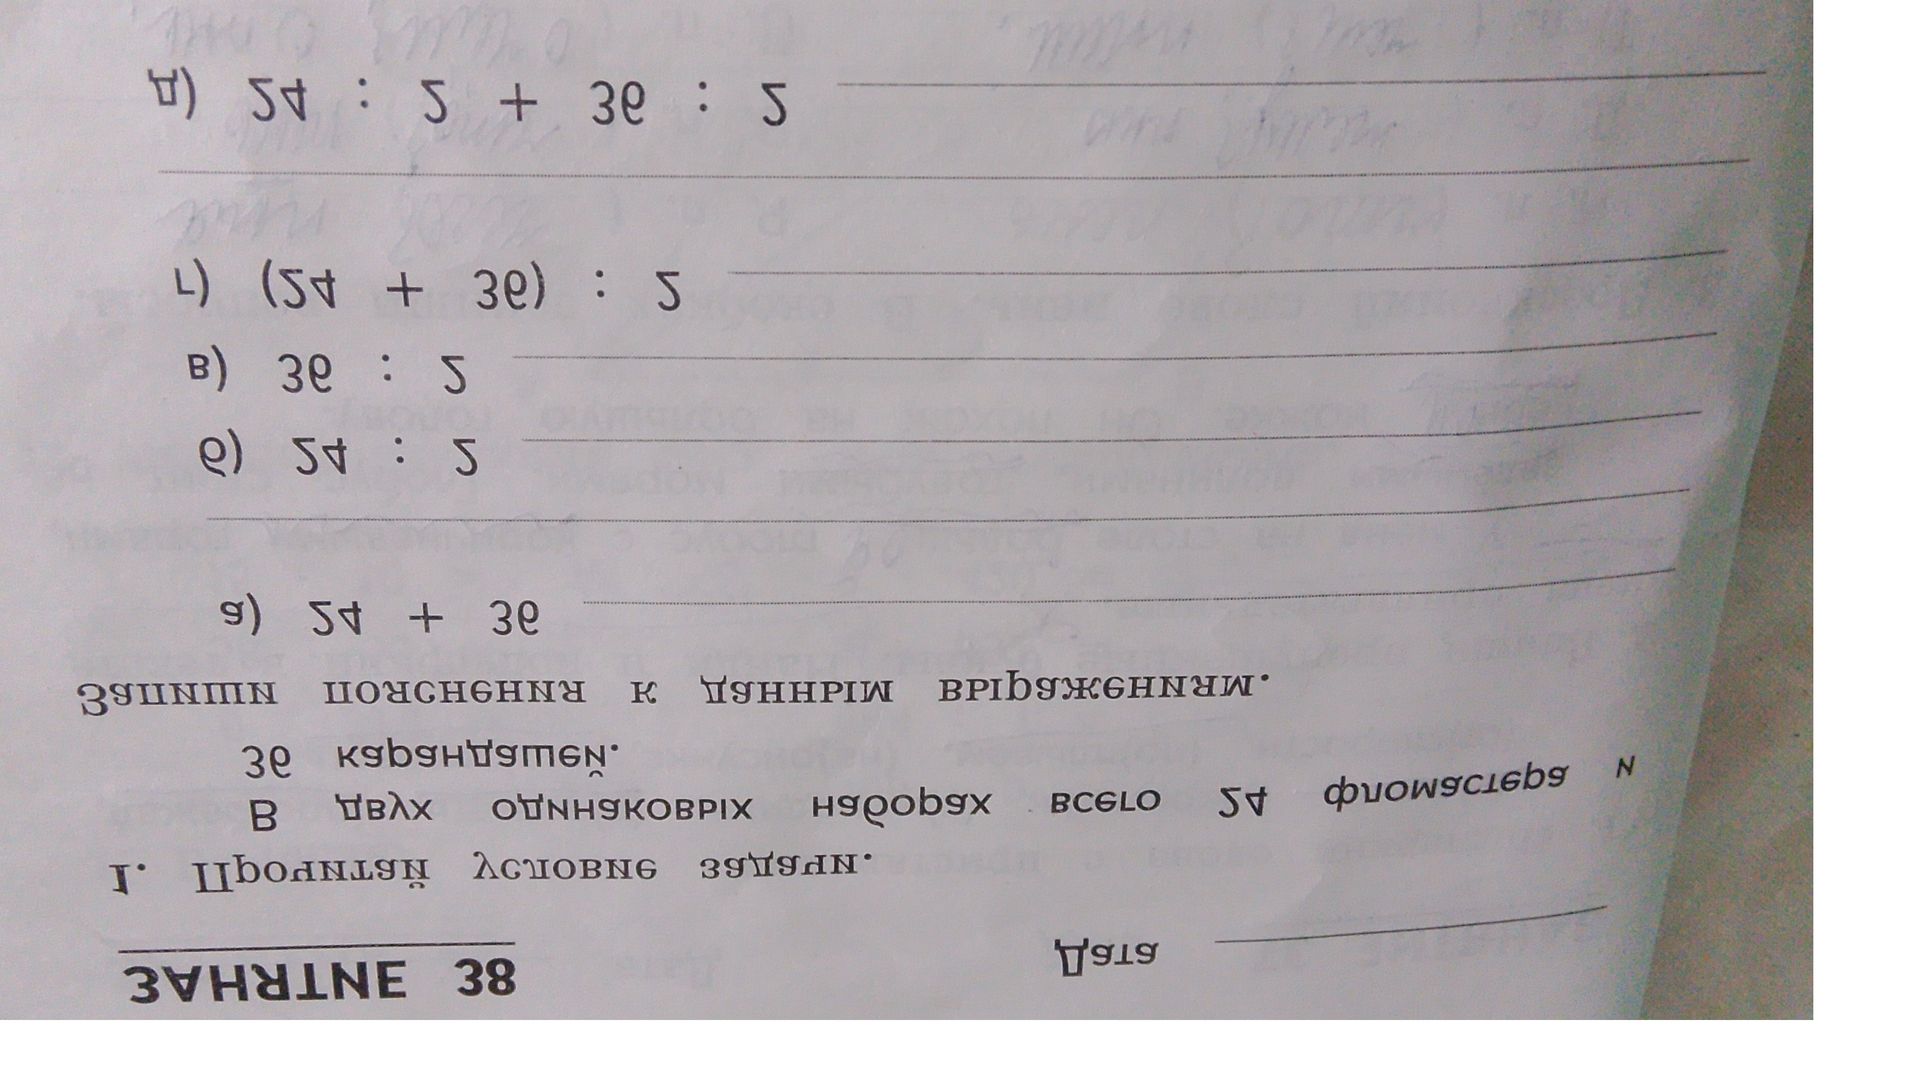 ЗАНЯТИЕ 38
Дата
1. Прочитай условие задачи.
В двух одинаковых наборах всего 24 фломастера и
36 карандашей.
Запиши пояснения к данным выражениям.
а) 24 + 36
б) 24 : 2
в) 36 : 2
г) (24 + 36) : 2
д) 24 : 2 + 36 : 2